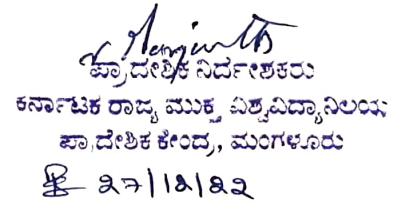 ಪ್ರಾದೇಶಿಕ ನಿರ್ದೇಶಕರು
ಕರ್ನಾಟಕ ರಾಜ್ಯ ಮುಕ್ತ ವಿಶ್ವವಿದ್ಯಾನಿಲಯ
ಪ್ರಾದೇಶಿಕ ಕೇಂದ್ರ, ಮಂಗಳೂರು
27/12/22